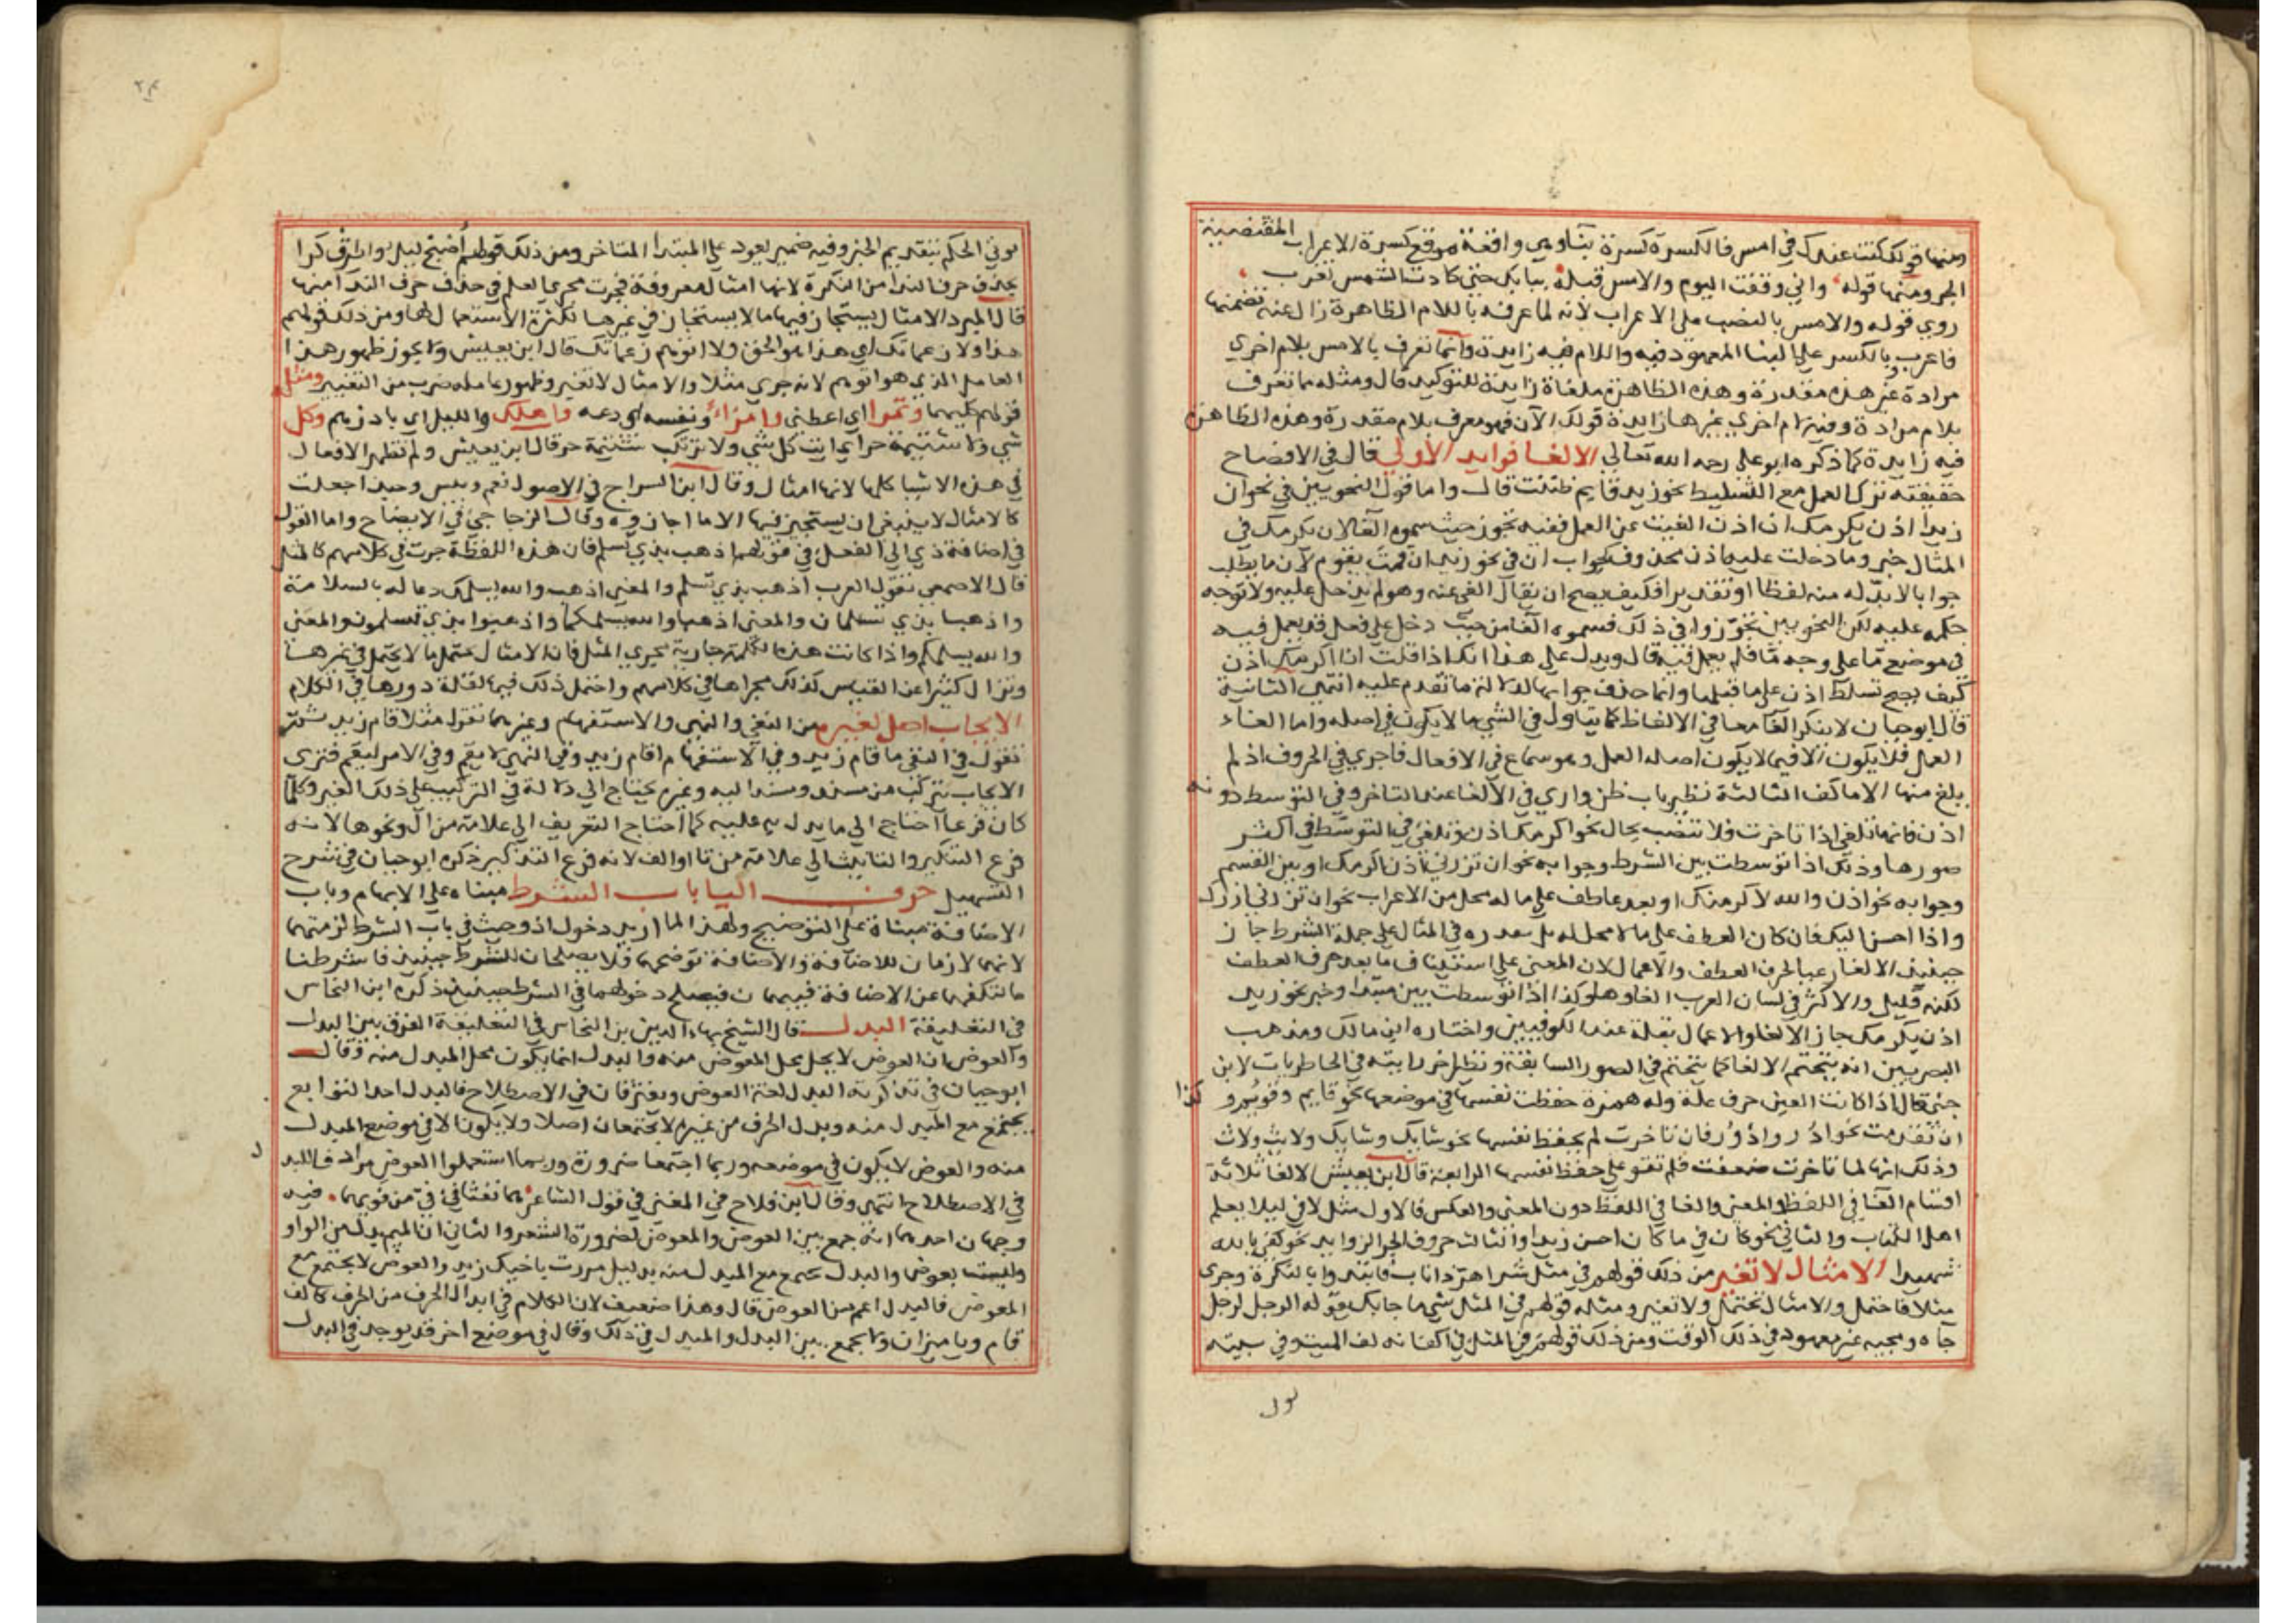 ومنها قولك كنت عندك في امس فالكسرة كسرة بناوهي واقعة موقع كسرة الاعراب المقتضيية
الجر ومنها قوله واني وقفت اليوم والامس قبله ببابك حتى كادت الشمس تغرب
روي قوله والامس بالنصب على الاعراب لانه لما عرفه باللام الظاهرة زال عنه تضمنها
فاعرب وبالكسر على البنا المعهود فيه واللام فيه زايدة وانما تعرف بالامس بلام اخري
مرادة غير هذه مقدرة وهذه الظاهرة ملغاة زايدة للتوكيد قال ومثله مما تعرف
بلام مرادة وفيه لام اخري غيرها زايدة قولك الآن فهو معرف بلام مقدرة وهذه الظاهرة
فيه زايدة كما ذكره ابو على رحمه الله تعالي الالغا فوايد الاولي قال في الافصاح
حقيقته ترك العمل مع التسليط نحو زيد قايم ظننت قال واما قول النحويين في نحو ان
زيدا اذن يكرمك ان اذن الغيت عن العمل ففيه تجوز حيث سموه الغا لان يكرمك في
المثال خبر وما دخلت عليه اذن محذوف كجواب ان في نحو زيد ان قمت يقوم لان ما يطلب
جوابا لابد له منه لفظا او تقديرا فكيف يصح ان يقال الغي عنه وهو لم يدخل عليه ولا توجه
حكمه عليه لكن النحويين تجوزوا في ذلك فسموه الغا من حيث دخل على فعل قد يعمل فيه
في موضع ما على وجه ما فلم يعمل فيه قال ويدل على هذا انك اذا قلت انا اكرمك اذن
كيف يصح تسلط اذن على ما قبلها وانما حذف جوابها لدلالة ما تقدم عليه انتهى الثانية
قال ابو حيان لا ينكر الغا معا في الالفاظ كما يتاول في الشي ما لا يكون في اصله واما الغاء
العمل فلا يكون الا فيما لا يكون اصله العمل وهو سماع في الافعال فاجري في الحروف اذ لم
يبلغ منها الا ما كف الثالثة نظير باب ظن واري في الالغا عند التاخر وفي التوسط دونه
اذن فانها تلغى اذا تاخرت فلا تنصب بحال نحو اكرمك اذن وتلغى في التوسط في اكثر
صورها وذلك اذا توسطت بين الشرط وجوابه نحو ان تزرني اذن اكرمك او بين القسم
وجوابه نحو اذن والله لاكرمنك او بعد عاطف على ما له محل من الاعراب نحو ان تزرني ازرك
واذا احسن اليك فان كان العطف على ما لا محل له بل بعدره في المثال على جملة الشرط جاز
حينيذ الالغا رعيا لحرف العطف والاعمال لان المعنى على استيناف ما بعد حرف العطف
لكنه قليل والاكثر في لسان العرب الغاوها وكذا اذا توسطت بين مبتدا وخبر نحو زيد
اذن يكرمك جاز الالغا والاعمال بقلة عند الكوفيين واختاره ابن مالك ومذهب
البصريين انه يتحتم الالغا كما يتحتم في الصور السابقة ونظير اخر رايته في الخاطريات لابن
جنى قال اذا كانت العين حرف علة وله همزة حفظت نفسها في موضعها نحو قايم وقويم و كذا
ان تقدمت نحو ادُر وادْوُر فان تاخرت لم يحفظ نفسها نحو شايك وشايك ولايث ولاث
وذلك انها لما تاخرت ضعفت فلم تقو على حفظ نفسها الرابعة قال ابن يعيش الالغا ثلاثة
اقسام الغا في اللفظ والمعنى والغا في اللفظ دون المعنى والعكس فالاول مثل لا في ليلا يعلم
اهل الكتاب والثاني نحو كان في ما كان احسن زيدا والثالث حروف الجر الزوايد نحو كفى بالله
شهيدا الامثال لا تغير من ذلك قولهم في مثل شر اهر ذا ناب فابتدوا بالنكرة وجري
مثلا فاحتمل والامثال تحتمل ولا تغير ومثله قولهم في المثل شي ما جابك قوله الرجل لرجل
جاه ومجيه غير معهود في ذلك الوقت ومن ذلك قولهم في المثل في اكفانه لف الميت وفي بيته
يوتي الحكم بتقديم الخبر وفيه ضمير يعود على المبتدا المتاخر ومن ذلك قولهم أصبح ليل واطرق كرا
بحذف حرف الندا من النكرة لانها امثال معروفة فجرت مجري العلم في حذف حرف الندا منها
قال المبرد الامثال يستجاز فيها ما لا يستجاز في غيرها لكثرة الاستعمال لها ومن ذلك قولهم
هذا ولا زعماتك اي هذا هو الحق ولا اتوهم زعماتك قال ابن يعيش ولا يجوز ظهور هذا
العامل الذي هو اتوهم لانه جري مثلا والامثال لا تغير وظهور عامله ضرب من التغيير ومثل
قولهم كليهما وتمرا اي اعطني وامراءً ونفسه اي دعه واهلك والليل اي بادرهم وكل
شي ولا شتيمة حر اي ايت كل شي ولا ترتكب شتيمة حر قال ابن يعيش ولم تظهر الافعال
في هذه الاشيا كلها لانها امثال وقال ابن السراج في الاصول نعم وبيس وحبذا جعلت
كالامثال لا ينبغي ان يستجيز فيها الا ما اجازوه وقال الزجاجي في الايضاح واما القول
في اضافة ذي الي الفعل في قولهم اذهب بذي تسلم فان هذه اللفظة جرت في كلامهم كالمثل
قال الاصمعي تقول العرب اذهب بذي تسلم والمعنى اذهب والله يسلمك دعا له بالسلامة
واذهبا بذي تسلمان والمعنى اذهبا والله يسلمكما واذهبوا بذي تسلمون والمعنى
والله يسلمكم واذا كانت هذه الكلمة جارية مجري المثل فان الامثال تحتمل ما لا يحتمل في غيرها
وتزال كثيرا عن القياس كذلك مجراها في كلامهم واحتمل ذلك فيها لقلة دورها في الكلام
الايجاب اصل لغيره من النفي والنهي والاستفهام وغيرها تقول مثلا قام زيد ثم
تقول في النفي ما قام زيد وفي الاستفهام اقام زيد وفي النهي لا يقم وفي الامر ليقم فتري
الايجاب يتركب من مسند ومسند اليه وغيره يحتاج الي دلالة في التركيب على ذلك الغير وكلما
كان فرعا احتاج الي ما يدل به عليه كما احتاج التعريف الي علامة من ال ونحوها لانه
فرع التنكير والتانيث الي علامة من تا او الف لانه فرع التذكير ذكره ابو حيان في شرح
التسهيل حرف البا باب الشرط مبناه على الابهام وباب
الاضافة مبناه على التوضيح ولهذا لما اريد دخول اذ وحيث في باب الشرط لزمتهما
لانهما لازمان للاضافة والاضافة توضحها فلا يصلحان للشرط حينيذ فاشترطنا
ما لتكفهما عن الاضافة فيبهمان فيصلح دخولهما في الشرط حينيذ ذكره ابن النحاس
في التعليقة البدل قال الشيخ بهاء الدين بن النحاس في التعليقة الفرق بين البدل
والعوض ان العوض لا يحل محل المعوض منه والبدل انما يكون محل المبدل منه وقال
ابو حيان في تذكرته البدل لغة العوض ويفترقان في الاصطلاح فالبدل احد التوابع
يجتمع مع المبدل منه وبدل الحرف من غيره لا يجتمعان اصلا ولا يكون الا في موضع المبدل
منه والعوض لا يكون في موضعه وربما اجتمعا ضرورة وربما استعملوا العوض مرادفا للبد ل
في الاصطلاح انتهى وقال ابن فلاح في المغني في قول الشاعر هما نفثا في فيّ من فويهما فيه
وجهان احدهما انه جمع بين العوض والمعوض لضرورة الشعر والثاني ان الميم بدل من الواو
وليست بعوض والبدل يجتمع مع المبدل منه بدليل مررت باخيك زيد والعوض لا يجتمع مع
المعوض فالبدل اعم من العوض قال وهذا ضعيف لان الكلام في ابدال الحرف من الحرف كالف
قام ويا ميزان ولا يجمع بين البدل والمبدل في ذلك وقال في موضع اخر قد يوجد في البدل